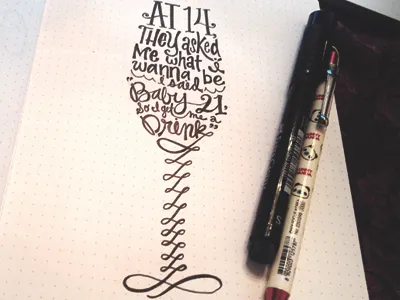 AT 14,
THEY asked
Me what i
wanna be
i said
"Baby 21,
so i get me a
Drink"